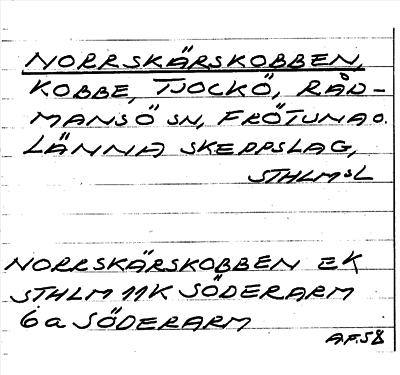 NORRSKÄRSKOBBEN,
KOBBE, TJOCKÖ, RÅD-
MANSÖ SN, FRÖTUNA O.
LÄNNA SKEPPSLAG,
STHLMSL
NORRSKÄRSKOBBEN EK
STHLM 11K SÖDERARM
6a SÖDERARM
A.F.58